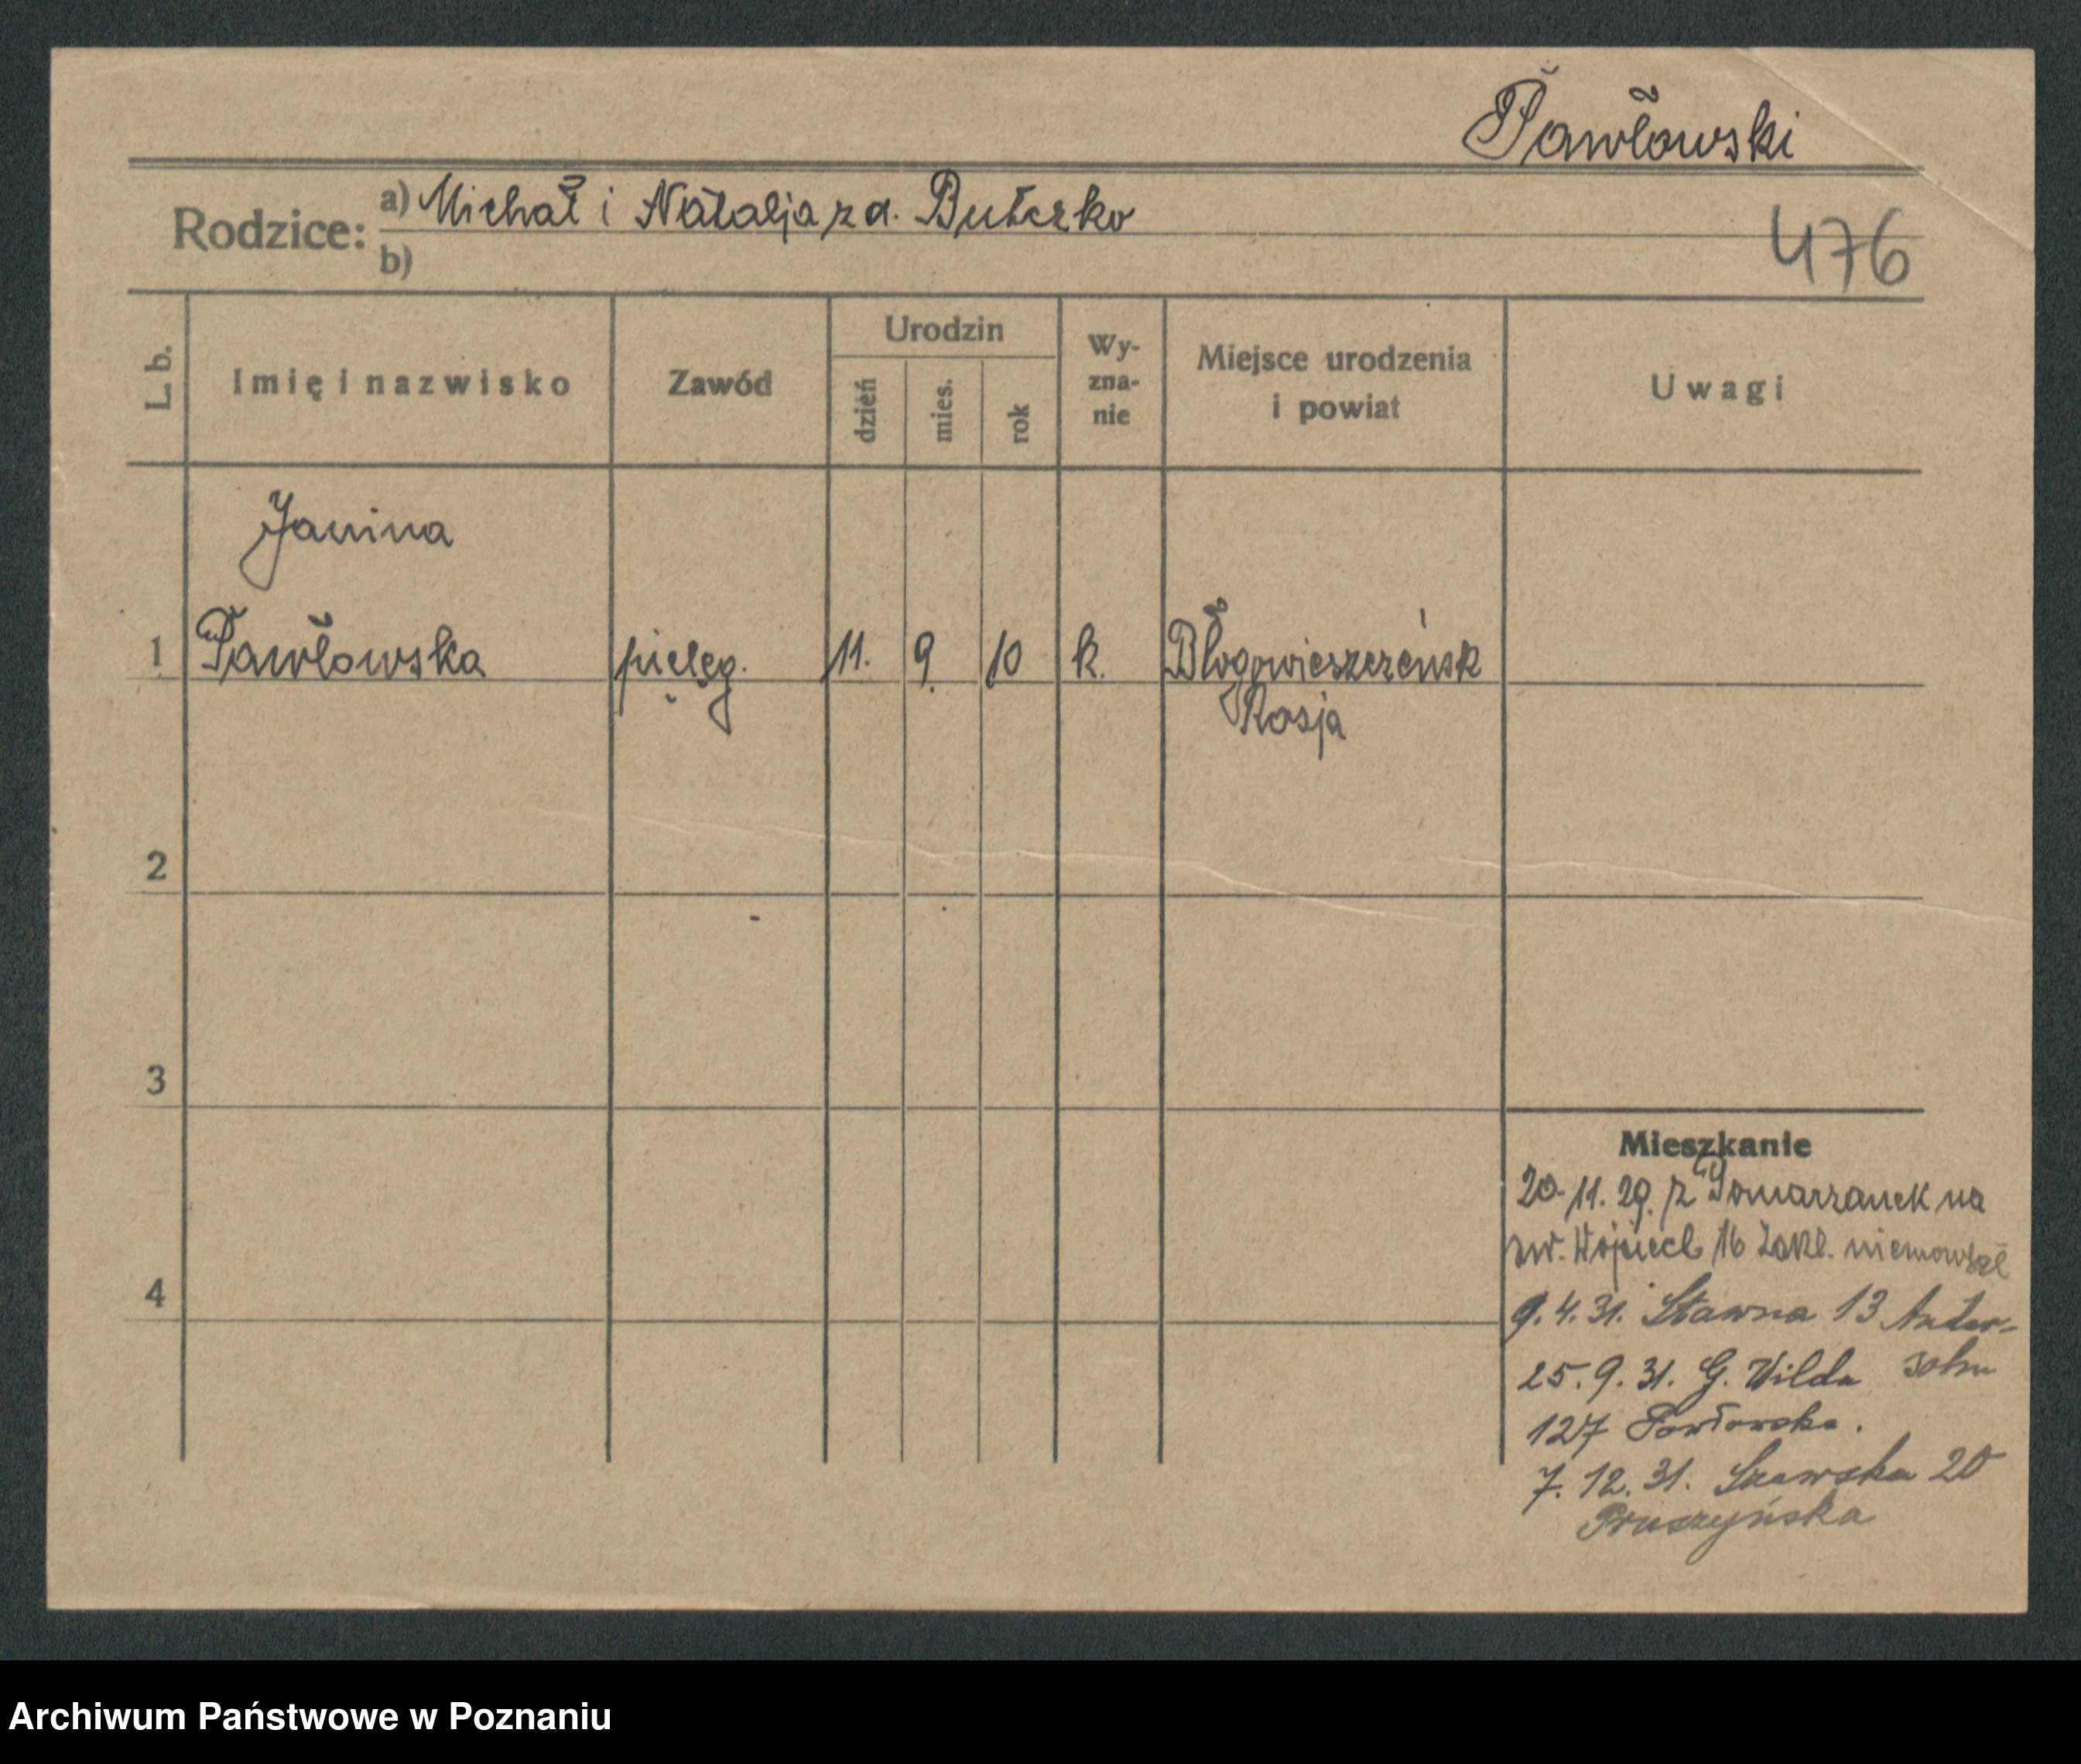 Pawłowski
Rodzice: a) Michał i Natalja z d. Buterko
b)
476
L. b.
Imię i nazwisko
Zawód
Urodzin
dzień
mies.
rok
Wy-
zna-
nie
Miejsce urodzenia
i powiat
Uwagi
Janina
1 Pawłowska pielęg. 11. 9. 10 k. Błogowieszczeńsk
Rosja
2
3
4
Mieszkanie
20. 11. 29. z Pomarzanek na
św. Wojciech 16 Zakł. niemowląt
9. 4. 31. Stawna 13
25. 9. 31. G. Wilda
127 Pawłowska.
7. 12. 31. 20
Pruszyńska
Archiwum Państwowe w Poznaniu